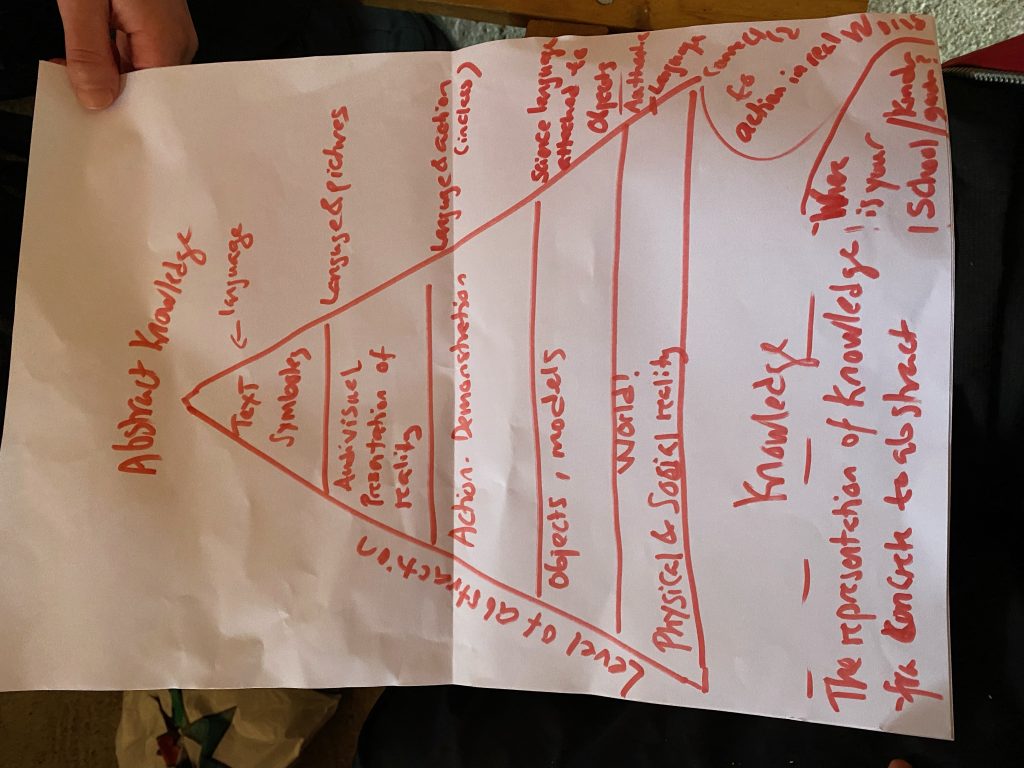 Abstract Knowledge
← language
Text
Symboles
Language & pictures
Audivisual
Presentation of
reality
Language & action
(in class)
Action. Demonstration
Science language
attached to
Objects
Objects, models
Language
World!
Physical & Social reality
to
action in real
Level of abstraction
Knowledge
The representation of Knowledge
Concrete to abstract
Where
is your
School/